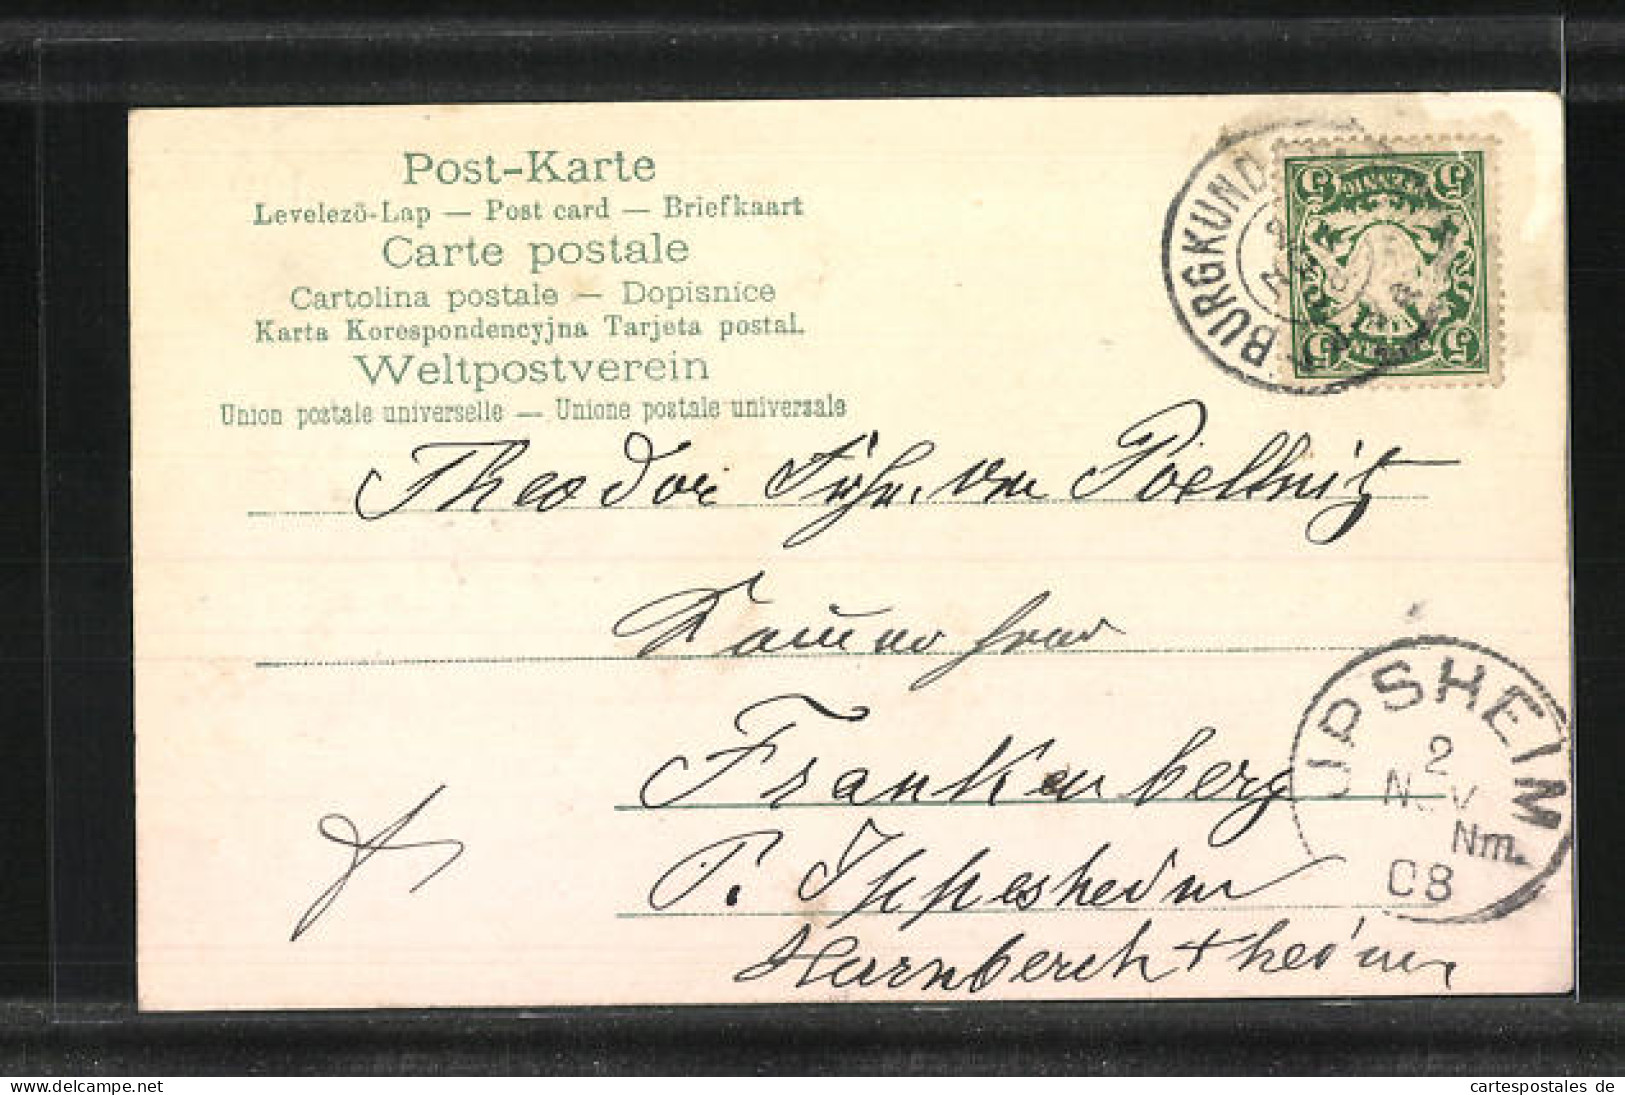 Post-Karte
Levelezö-Lap — Post card — Briefkaart
Carte postale
Cartolina postale — Dopisnice
Karta Korespondencyjna Tarjeta postal.
Weltpostverein
Union postale universelle — Unione postale universale
BURGKUND
5 5
5 5
Theodor Frhr. von Poellnitz
Frankenberg
P. Ippesheim
IPSHEIM
2
NOV
Nm.
08
ebay-delcampe
cartespostales de